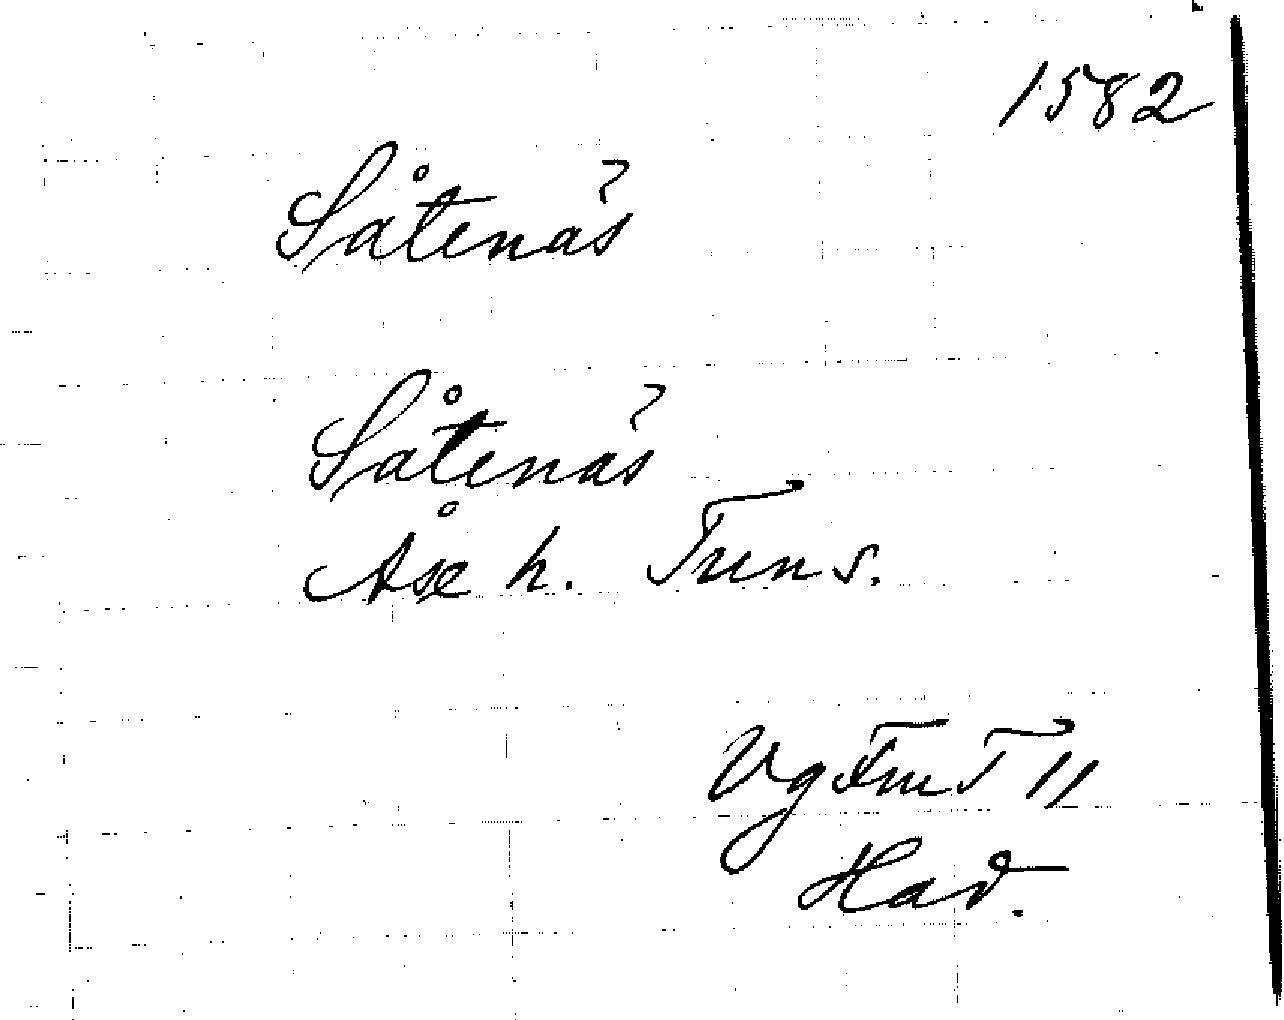 1582
Såtenäs
Såtenäs
Åse h. Tuns.
Vg FmT 11
Had.